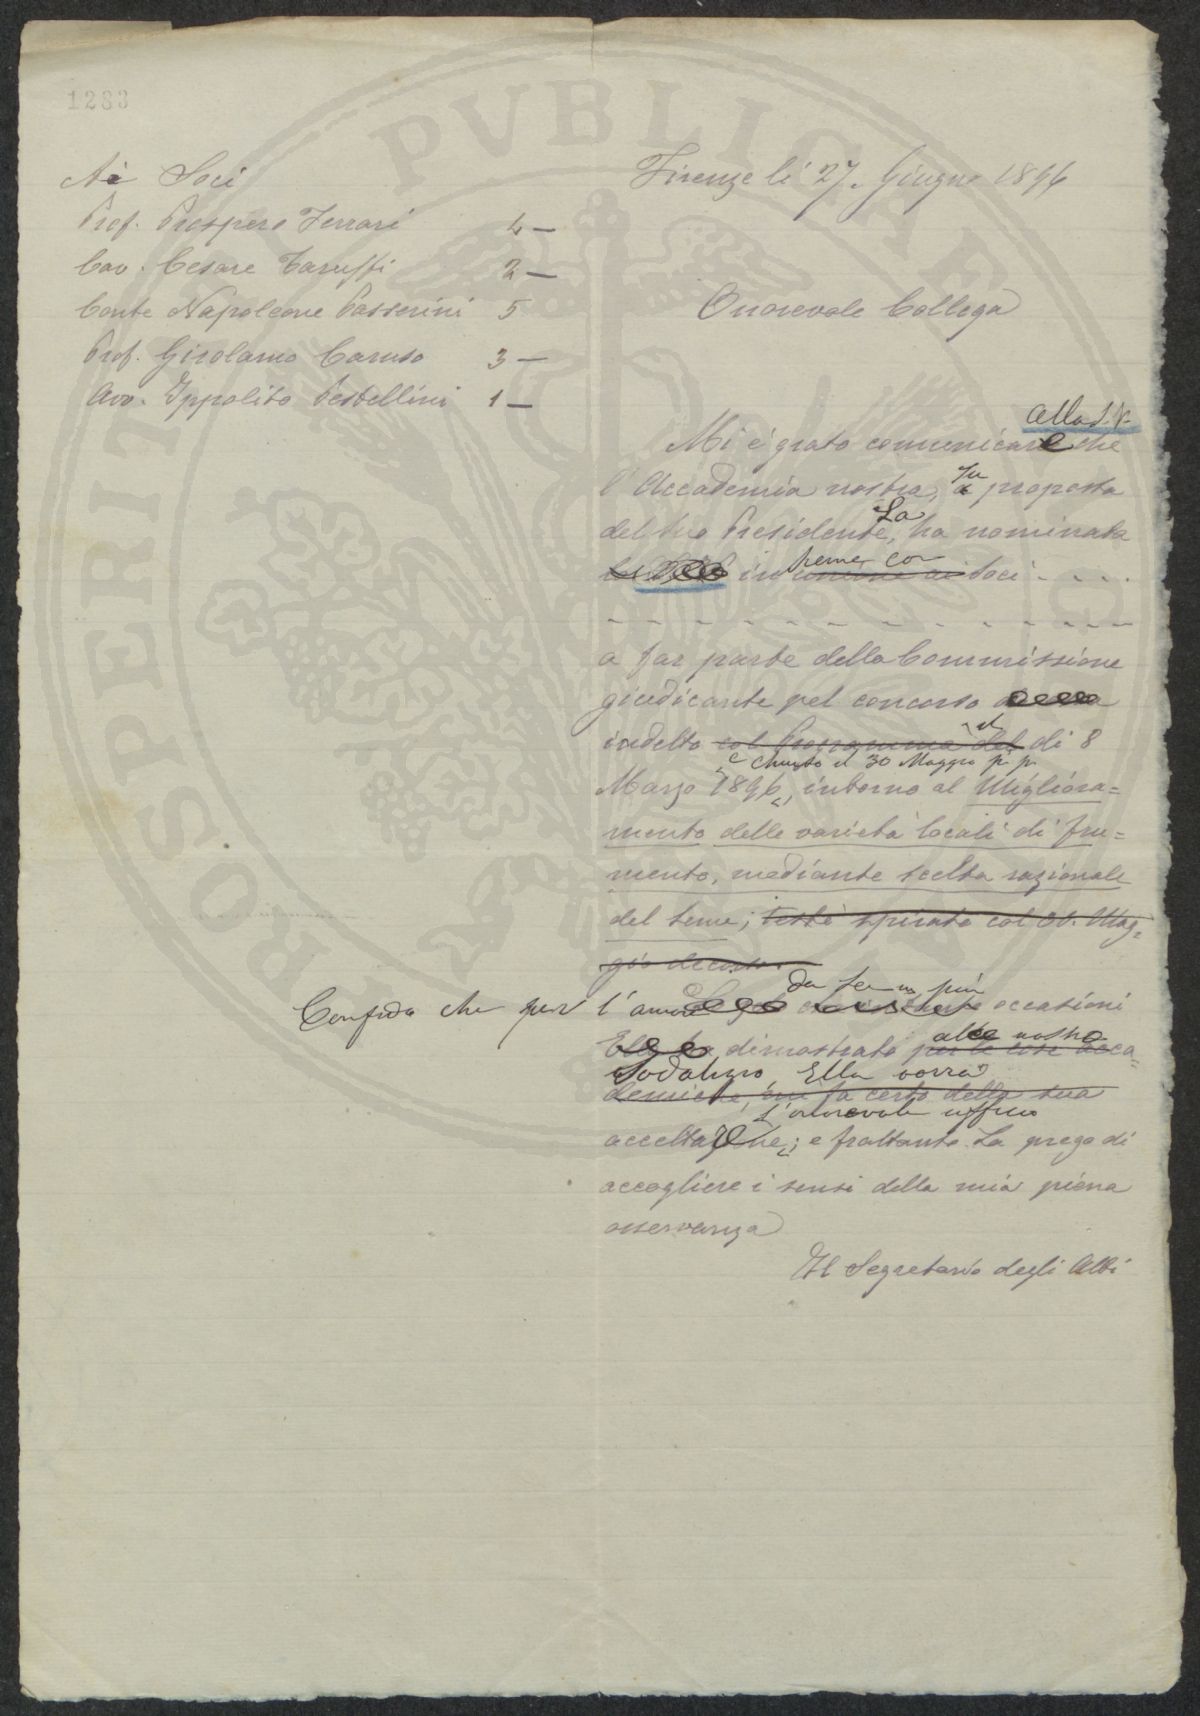 1283
Ai Soci
Prof. Prospero Ferrari 4 —
Cav. Cesare Taruffi 2 —
Conte Napoleone Passerini 5
Prof. Girolamo Caruso 3 —
Avv. Ippolito Pestellini 1 —
Firenze li 27. Giugno 1896
Onorevole Collega
alla S. V.
Mi è grato comunicare che
l'Accademia nostra, su proposta
del suo Presidente, La ha nominata
insieme con soci - - - -
- - - - - - - - - - - - -
a far parte della Commissione
giudicante pel concorso
indetto col Programma del di 8
e chiuso il 30 Maggio p. p.
Marzo 1896, intorno al Migliora=
mento delle varietà locali di fru=
mento, mediante scelta razionale
del seme; testè spirato col 30. Mag=
gio decorso.
da Lei in più
Confido che per l'amore occasioni
dimostrato per le cose acca=
al nostro
Sodalizio, Ella vorrà
demiche, certo della sua
l'onorevole ufficio
accettazione; e frattanto La prego di
accogliere i sensi della mia piena
osservanza
Il Segretario degli Atti
PVBLICAE
PROSPERITATI